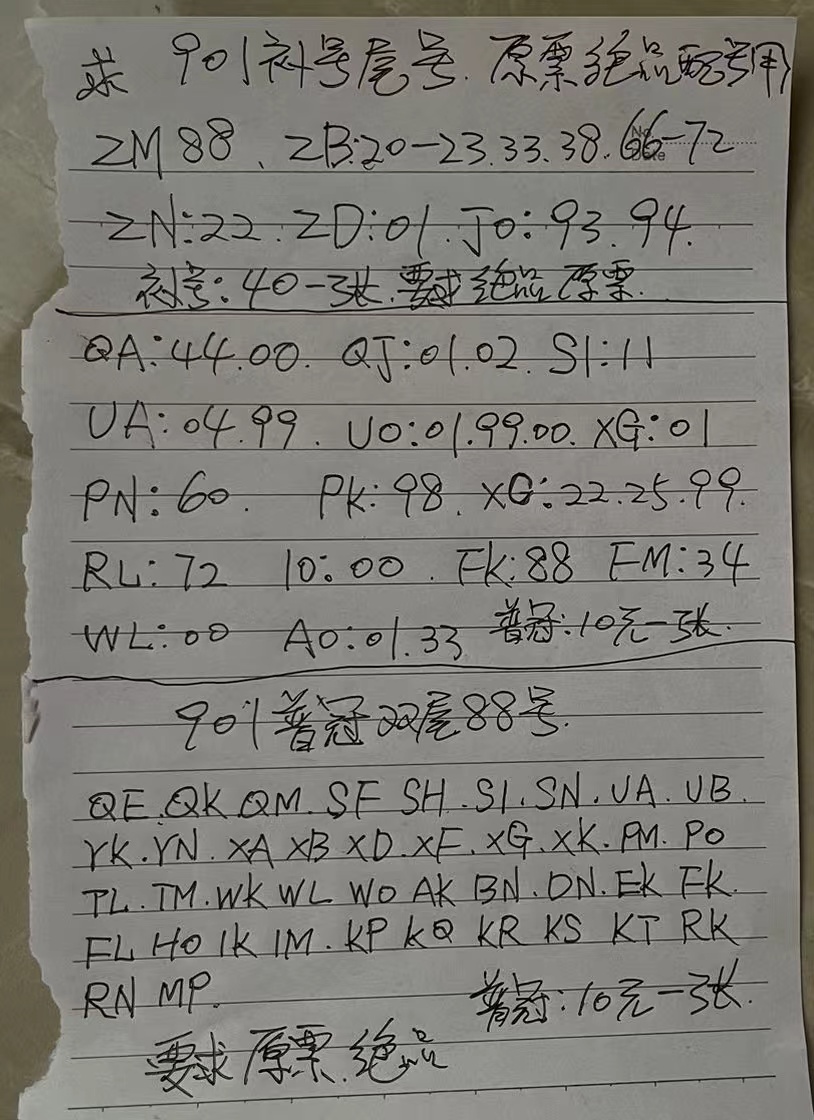 求 901补号尾号.原票绝品配号用
ZM 88、ZB:20-23.33.38.66-72
ZN:22.ZD:01.JO:93.94.
补号:40一张.要求绝品原票.
QA:44.00. QJ:01.02. SI:11
UA:04.99. UO:01.99.00. XG:01
PN:60. PK:98. XG:22.25.99.
RL:72 IO:00. FK:88 FM:34
WL:00 AO:01.33 普冠:10元一张.
901普冠双尾88号.
QE.QK.QM.SF SH.SI.SN.UA.UB.
YK.YN.XA XB XD.XF.XG.XK.PM.PO
TL.TM.WK WL WO AK BN.DN.EK FK.
FL HO IK IM.KP KQ KR KS KT RK
RN MP. 普冠:10元一张.
要求原票.绝品